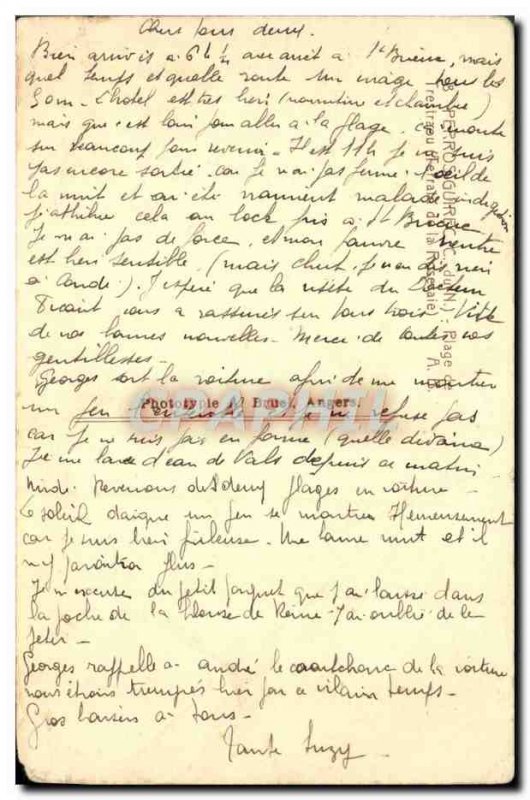 Chers tous deux.
Bien arrivés à 6h ½ avec arrêt à St Brieuc, mais
quel temps et quelle route un orage tous les
50m. L'hotel est très bien (nourriture et chambre)
mais que c'est loin pour aller à la plage, ça monte
sur beaucoup pour revenir. Il est 11h je ne suis
pas encore sortie car je n'ai pas fermé l'oeil de
la nuit et ai été vraiment malade indigestion
j'attribue cela au bock pris à St Brieuc
Je n'ai pas de force, et mon pauvre ventre
est bien sensible (mais chut, je n'en dis rien
à André). J'espère que la visite du Docteur
vous a rassurés sur tous trois. Vite
de vos bonnes nouvelles. Merci de toutes vos
gentillesses.
Georges sort la voiture afin de me montrer
un peu refuse pas
car je ne suis pas en forme (quelle déveine)
Je me lave d'eau de Vals depuis ce matin
Midi. Revenons de plages en voiture
Le soleil daigne un peu se montrer Heureusement
car je suis bien frileuse. Une bonne nuit et il
n'y paraîtra plus -
Je m'excuse du petit paquet que j'ai laissé dans
la poche de la blouse de Reine. J'ai oublié de le
jeter -
Georges rappelle à André le caoutchouc de la voiture
nous étions trempés hier par ce vilain temps -
Gros baisers à tous -
Tante Suzy
PERROS-GUIREC (C.-du-N.) : Plage de
Phototypie Bruel, Angers.
CPAPHIL